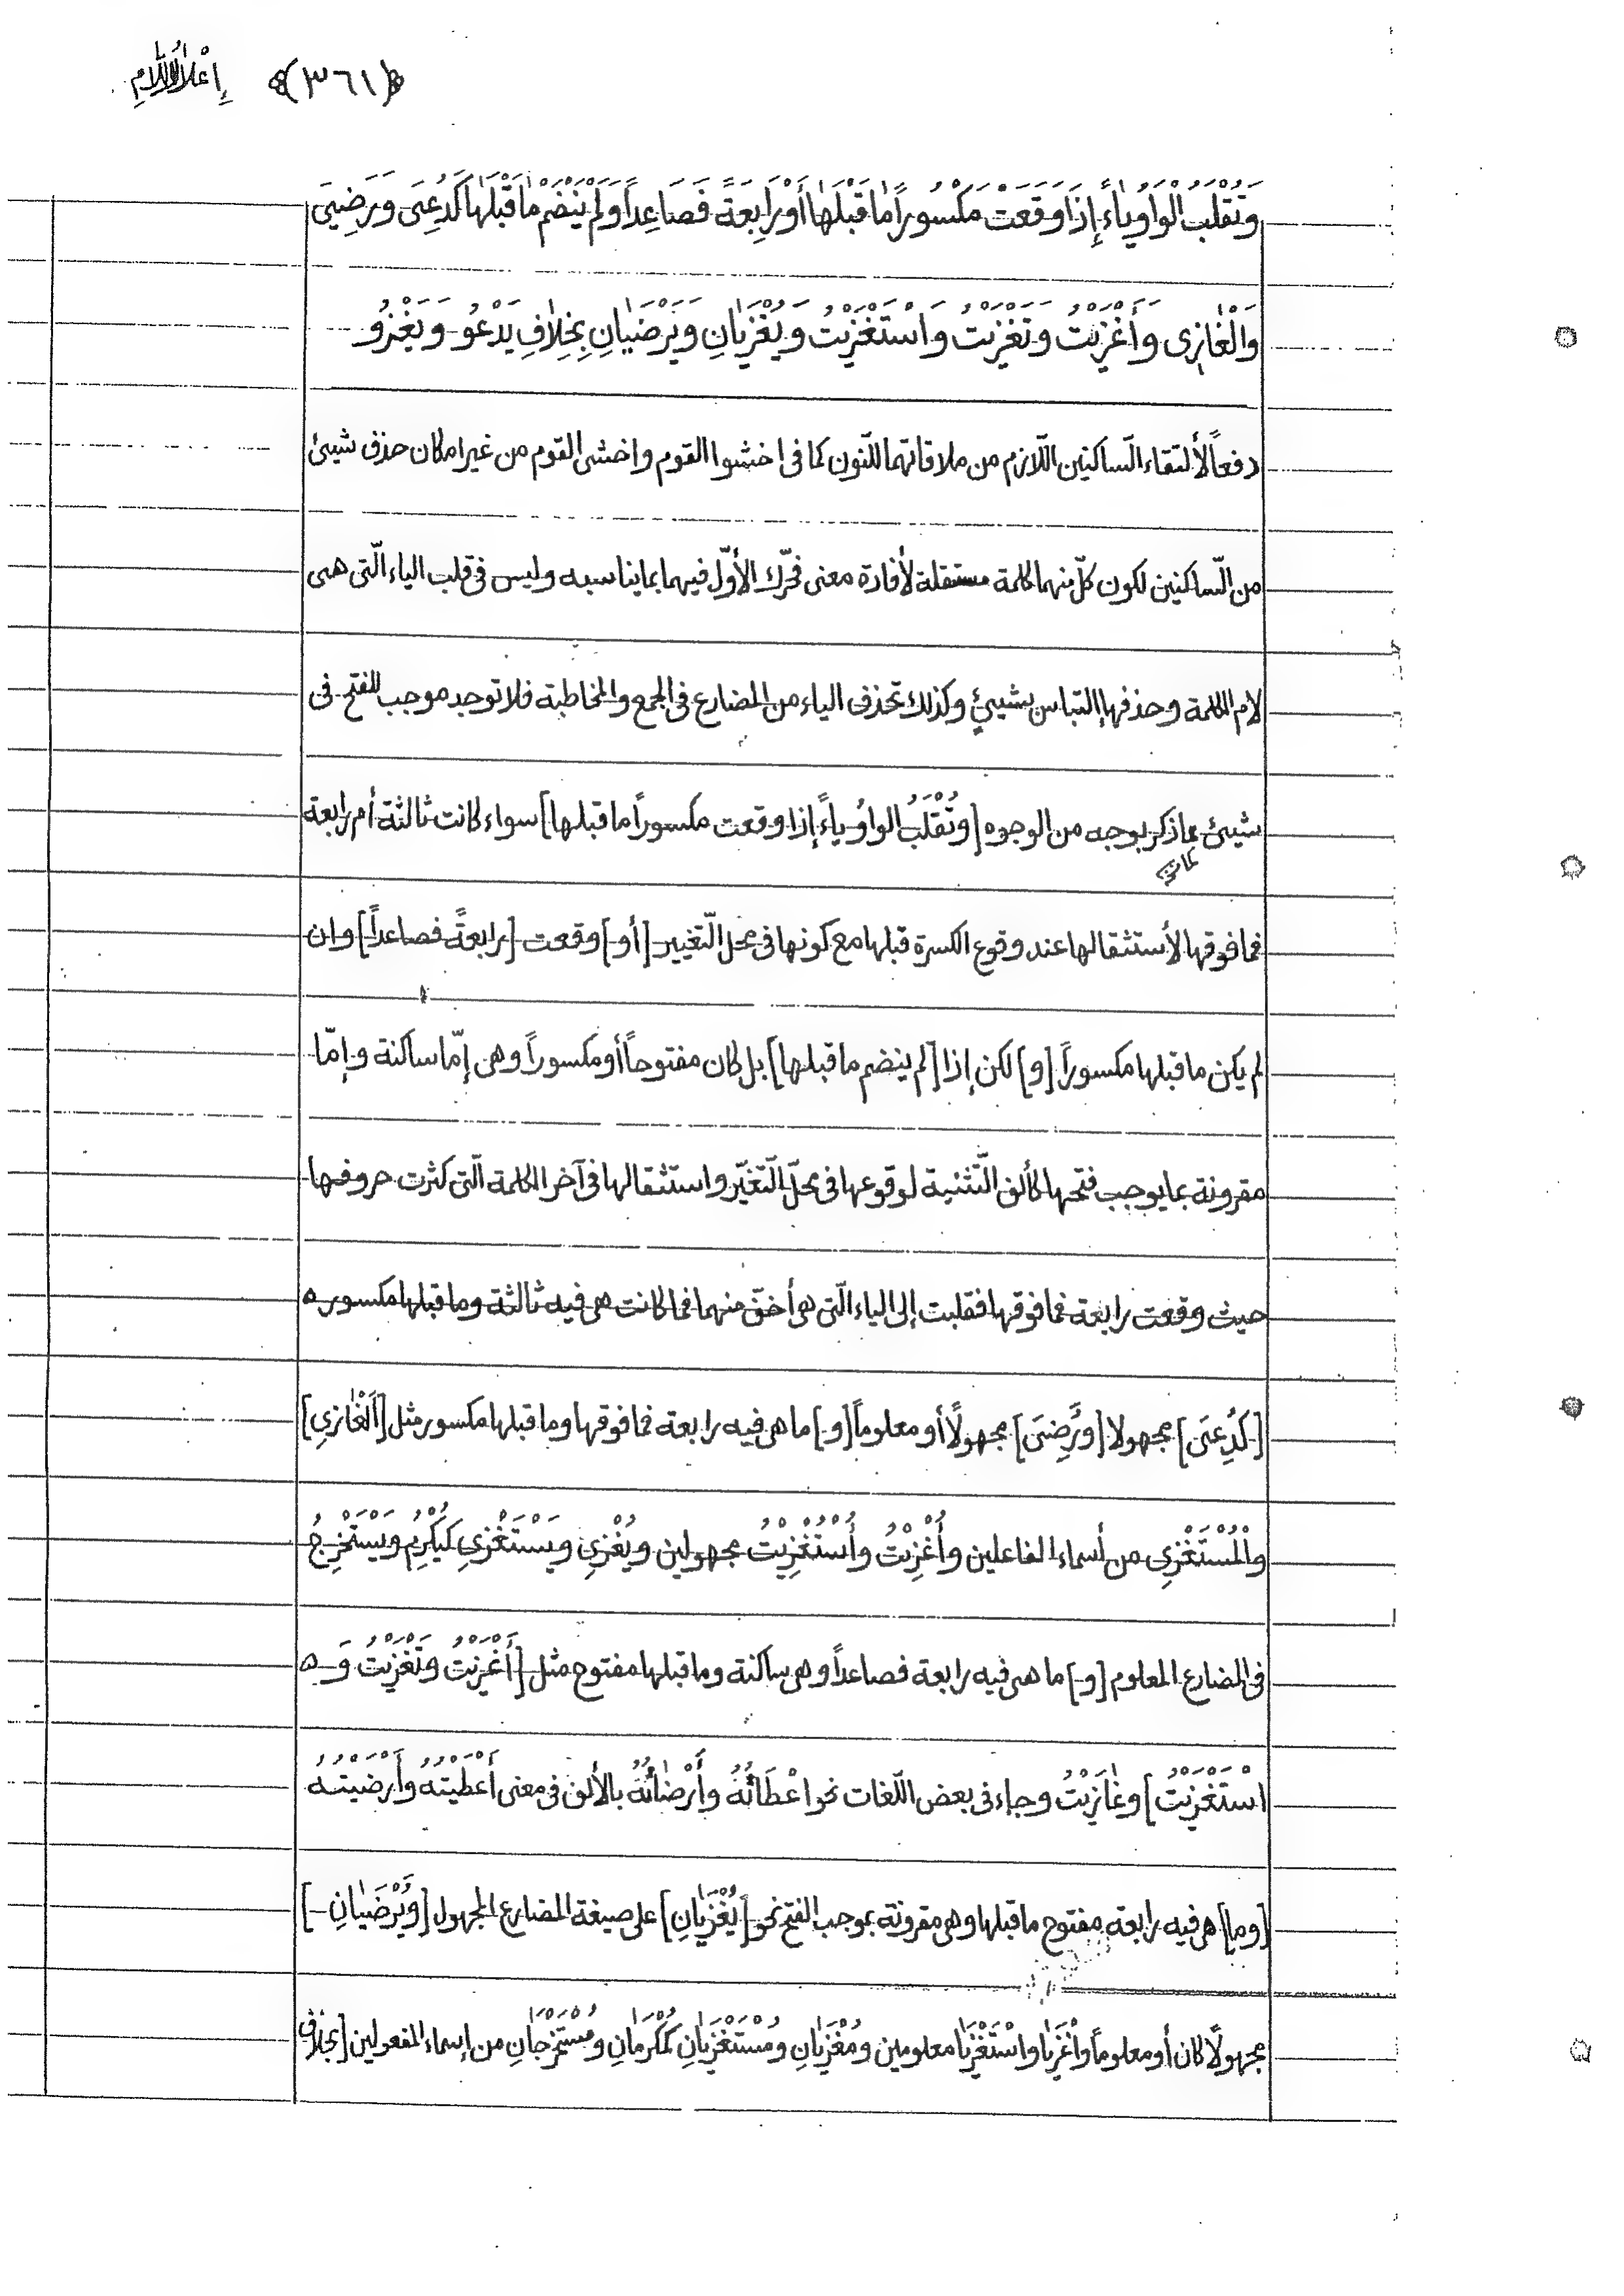 ﴿٣٦١﴾ إعلال اللام
وَتُقْلَبُ الْوَاوُ يٰاءً إِذَا وَقَعَتْ مَكْسُوراً مٰا قَبْلَهٰا أَوْ رَابِعَةً فَصَاعِداً وَلَمْ يَنْضَمْ مٰا قَبْلَهٰا كَدُعِىَ وَرَضِىَ
وَالْغٰازِى وَأَغْزَيْتُ وَتَغَزَّيْتُ وَاسْتَغْزَيْتُ وَيُغْزَيٰانِ وَيَرْضَيٰانِ بِخِلٰافِ يَدْعُو وَيَغْزُو
دفعاً لألتقاء السّاكنين اللّازم من ملاقاتهما للنّون كما فى اخشوا القوم واخشى القوم من غير امكان حذف شيئ
من السّاكنين لكون كلّ منهما كلمة مستقلة لأفادة معنى فحرّك الأوّل فيهما بما يناسبه وليس فى قلب الياء الّتى هى
لام الكلمة وحذفها إلتباس بشيئ وكذلك تحذف الياء من المضارع فى الجمع والمخاطبة فلا توجد موجب للفتح فى
شيئ مماذكر بوجه من الوجوه [وتُقْلَبُ الواوُ ياءً إذا وقعت مكسوراً ما قبلها] سواء كانت ثالثة أم رابعة
فما فوقها لأستثقالها عند وقوع الكسرة قبلها مع كونها فى محل التّغيير [أو] وقعت [رابعةً فصاعداً] وان
لم يكن ما قبلها مكسوراً [و] لكن إذا [لم ينضم ما قبلها] بل كان مفتوحاً أو مكسوراً وهى إمّا ساكنة وإمّا
مقرونة بما يوجب فتحها كألف التّثنية لوقوعها فى محلّ التّغيّر واستثقالها فى آخر الكلمة الّتى كثرت حروفها
حيث وقعت رابعة فما فوقها فقلبت إلى الياء الّتى هى أخفّ منهما فما كانت هى فيه ثالثة وما قبلها مكسور ه
[كَدُعِىَ] مجهولا [وَرَضِىَ] مجهولاً أو معلوماً [و] ما هى فيه رابعة فما فوقها وما قبلها مكسور مثل [اَلْغٰازِي]
والْمُسْتَغْزِى من أسماء الفاعلين وأُغْزِيْتُ وأُسْتُغْزِيْتُ مجهولين ويُغْزِي ويَسْتَغْزِي كَيُكْرِمُ ويَسْتَخْرِجُ
فى المضارع المعلوم [و] ما هى فيه رابعة فصاعداً وهى ساكنة وما قبلها مفتوح مثل [أَغْزَيْتُ وتَغَزَّيْتُ وَ ه
اسْتَغْزَيْتُ] وغٰازَيْتُ وجاء فى بعض اللّغات نحو اعْطَاتُهُ وأَرْضٰاتُهُ بالألف فى معنى أَعْطَيْتُهُ وأَرْضَيْتُهُ
[وما] هى فيه رابعة مفتوح ما قبلها وهى مقرونة بموجب الفتح نحو [يُغْزَيٰانِ] على صيغة المضارع المجهول [ويُرْضَيٰانِ]
مجهولاً كان أو معلوماً وأَغْزَيٰا واسْتَغْزَيٰا معلومين ومُغْزَيٰانِ ومُسْتَغْزَيٰانِ كَمُكْرَمٰانِ ومُسْتَخْرَجٰانِ من إسماء المفعولين [بخلاف